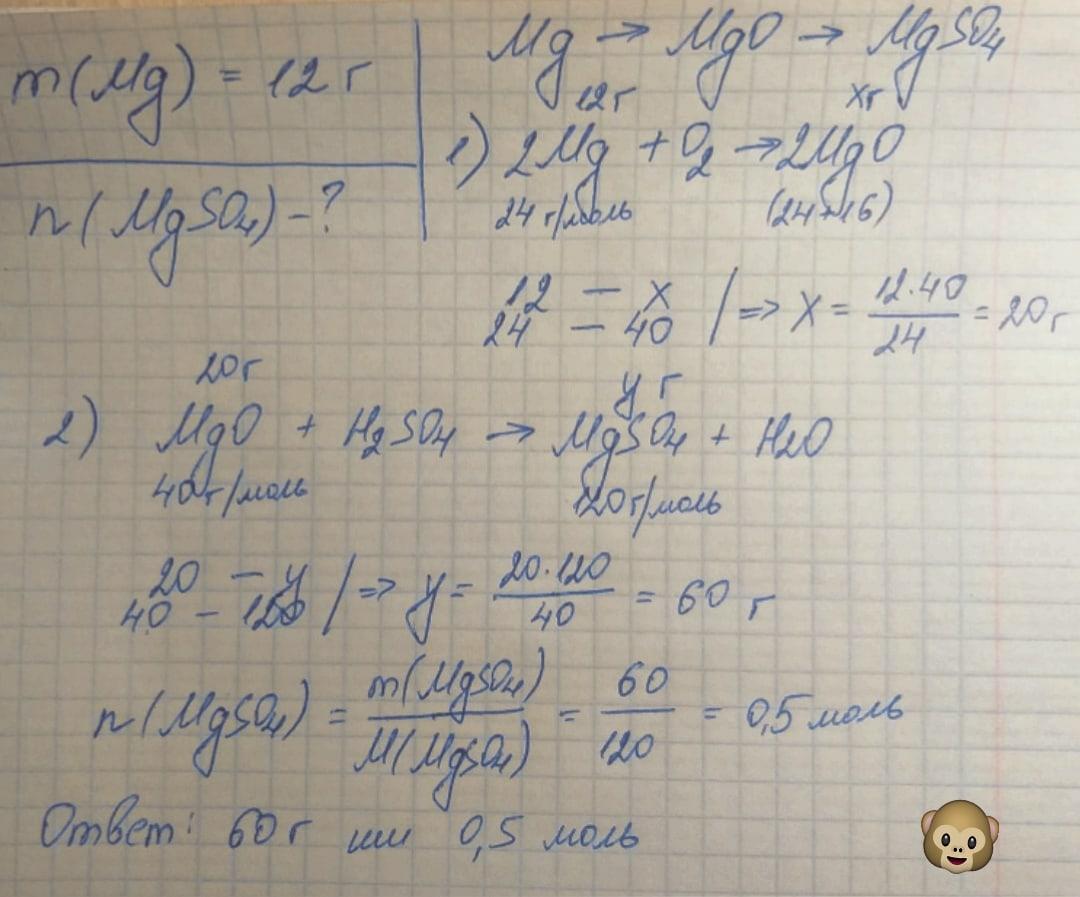 m(Mg) = 12 г
n(MgSO4) - ?
Mg → MgO → MgSO4
12г xг
1) 2Mg + O2 → 2MgO
24 г/моль (24+16)
12 — x
24 — 40 | => x = 12·40 / 24 = 20 г
20г y г
2) MgO + H2SO4 → MgSO4 + H2O
40 г/моль 120 г/моль
20 — y
40 — 120 | => y = 20·120 / 40 = 60 г
n(MgSO4) = m(MgSO4) / M(MgSO4) = 60 / 120 = 0,5 моль
Ответ: 60 г или 0,5 моль